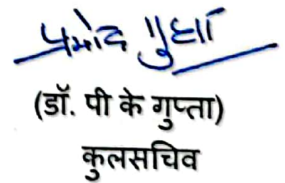 प्रमोद गुप्ता
(डॉ. पी के गुप्ता)
कुलसचिव